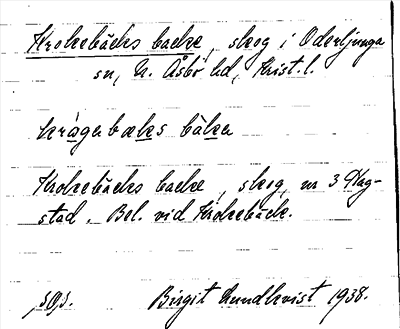 Krokebäcks backe, skog i Oderljunga
sn, N. Åsbo hd, Krist. l.
kràgabæks bàka
Krokebäcks backe, skog, nr 3 Hag-
stad. Bel. vid Krokebäck.
sgs. Birgit Lundkvist 1938.